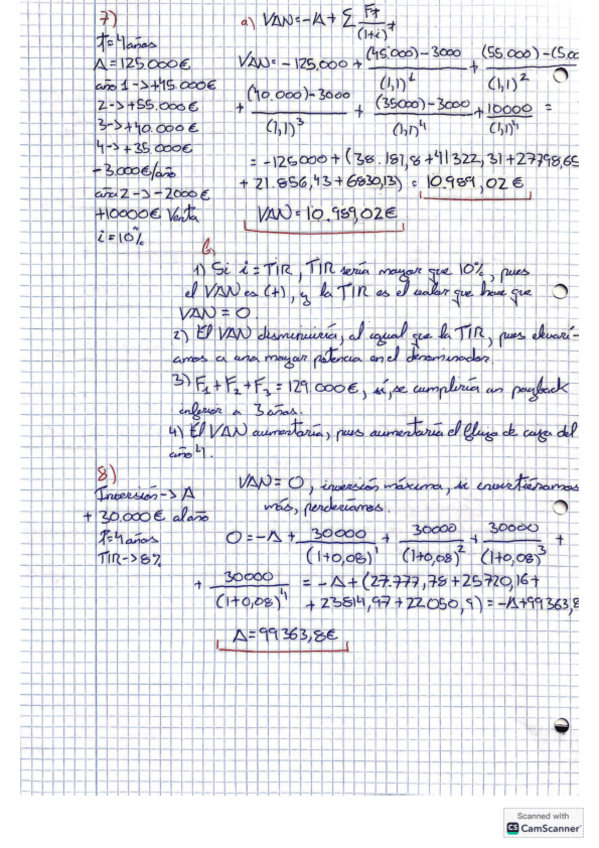 7)
T=4 años
A=125.000€
año 1->+45.000€
2->+55.000€
3->+40.000€
4->+35.000€
-3.000€/año
año 2->-2000€
+10000€ Venta
i=10%
a) VAN=-A+ Σ Ft/(1+i)^t
VAN=-125.000 + (45.000)-3000/(1,1)^1 + (55.000)-(5.00
+ (40.000)-3000/(1,1)^3 + (35000)-3000/(1,1)^4 + 10000/(1,1)^4 =
(1,1)^2
=-125000+(38.181,8+41322,31+27798,65
+21.856,43+6830,13) = 10.989,02€
VAN=10.989,02€
b
1) Si i=TIR, TIR sería mayor que 10%, pues
el VAN es (+), y la TIR es el valor que hace que
VAN=0.
2) El VAN disminuiría, al igual que la TIR, pues elevarí-
amos a una mayor potencia en el denominador.
3) F1+F2+F3=129.000€, sí, se cumpliría un payback
inferior a 3 años.
4) El VAN aumentaría, pues aumentaría el flujo de caja del
año 4.
8)
Inversión->A
+30.000€ al año
T=4 años
TIR->8%
VAN=0, inversión máxima, si invirtiéramos
más, perderíamos.
0=-A+ 30000/(1+0,08)^1 + 30000/(1+0,08)^2 + 30000/(1+0,08)^3 +
+ 30000/(1+0,08)^4 =-A+(27.777,78+25720,16+
+23814,97+22.050,9)=-A+99363,8
A=99363,8€
Scanned with
CS CamScanner